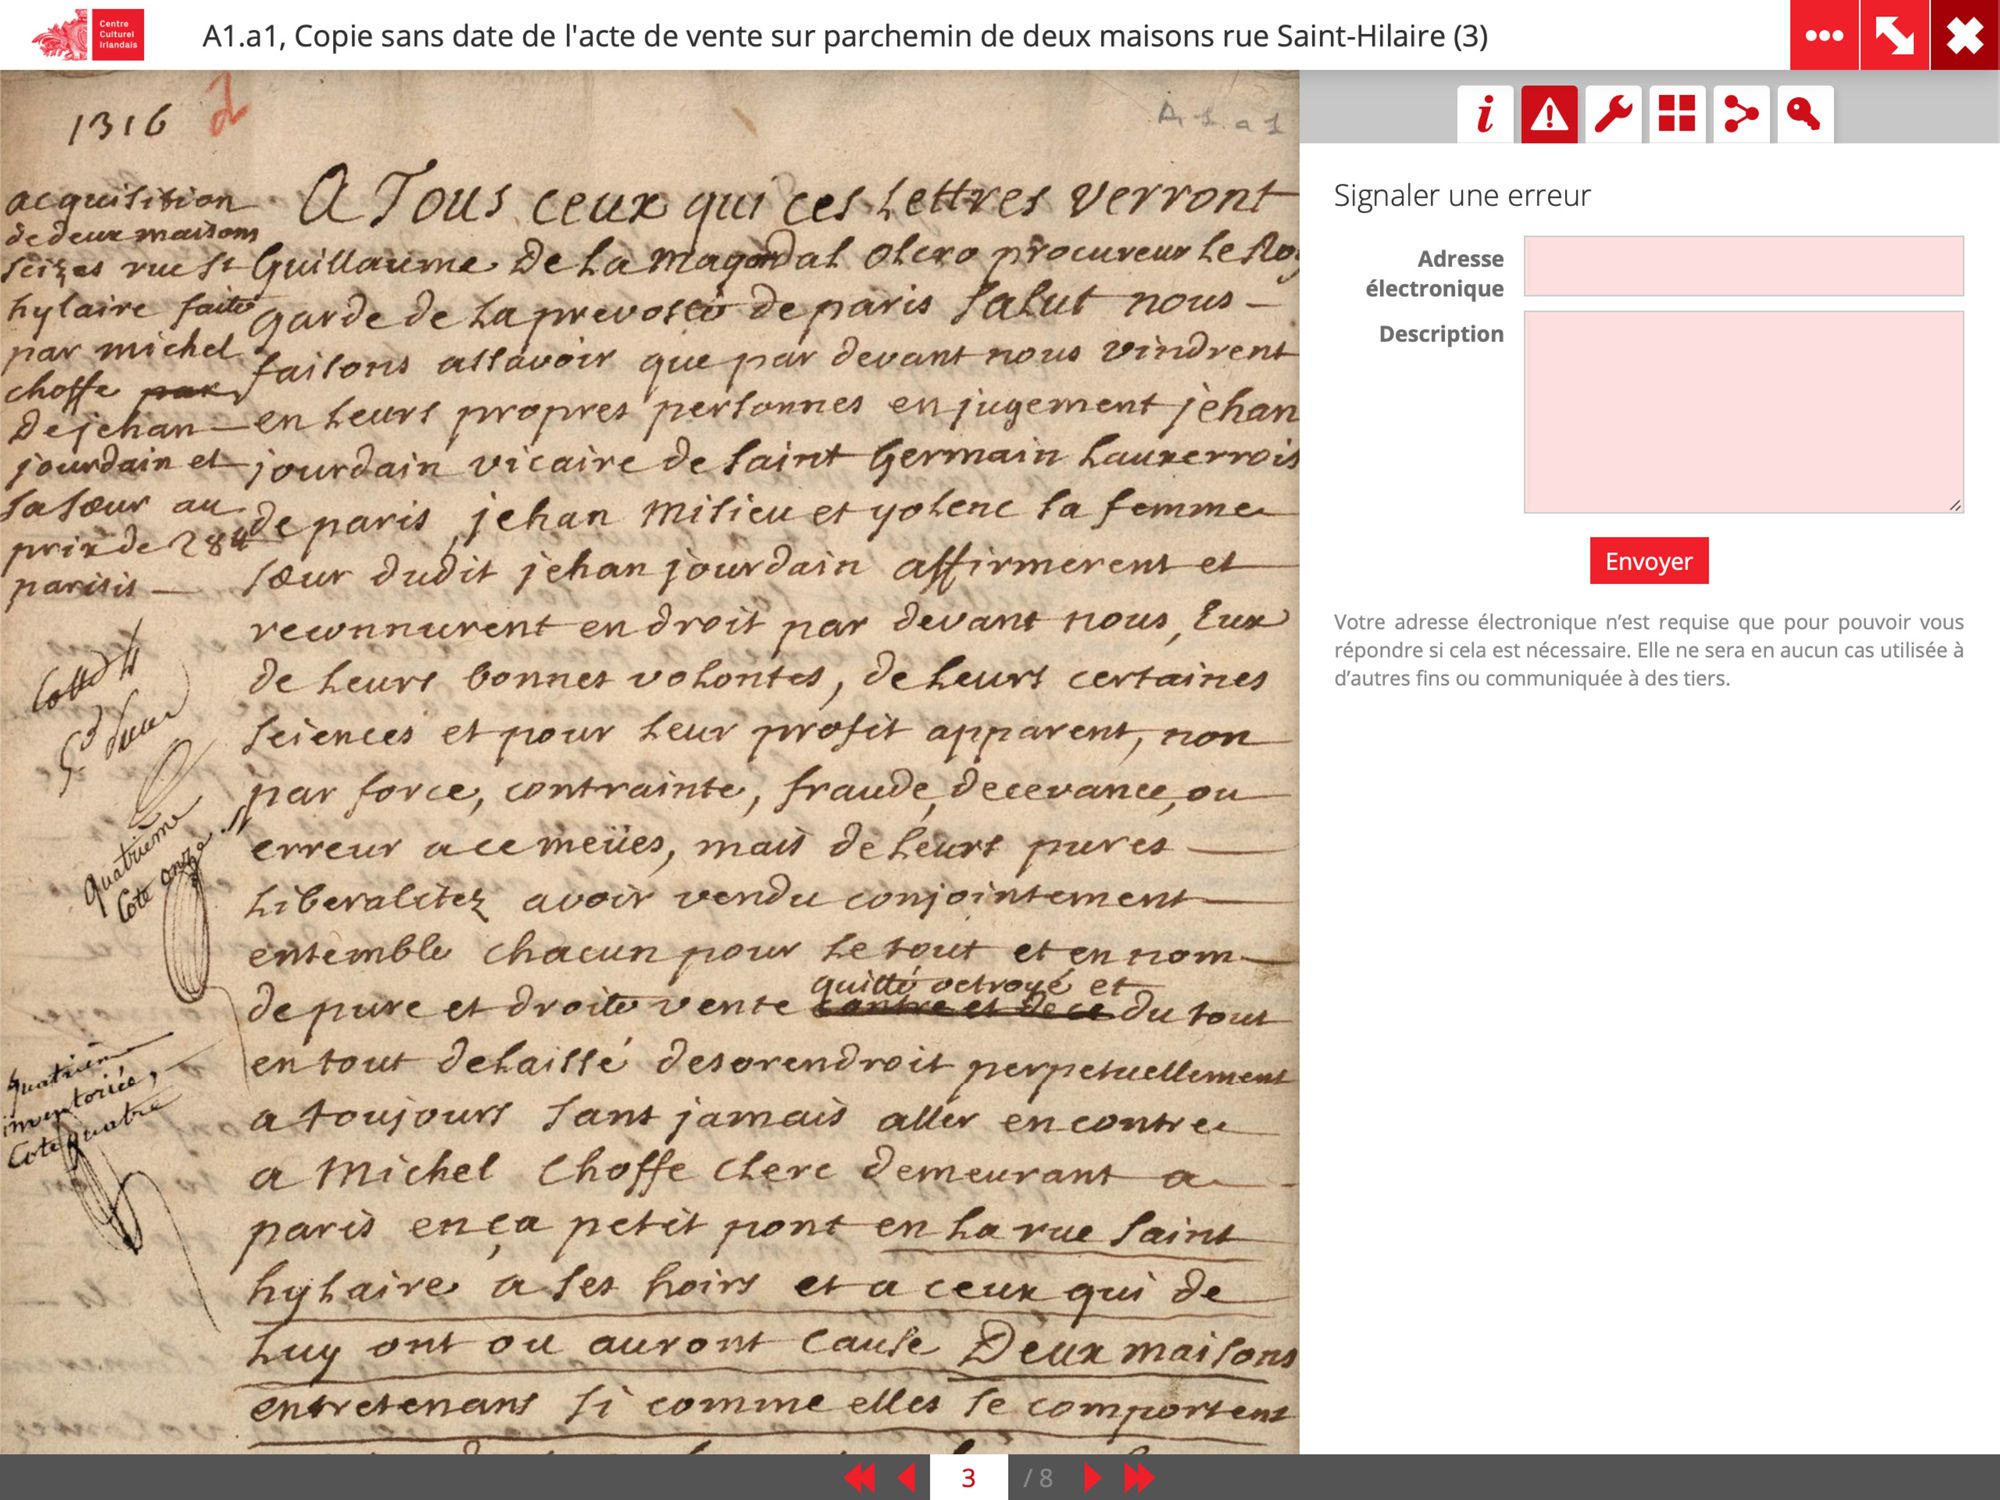 Centre
Culturel
Irlandais
A1.a1, Copie sans date de l'acte de vente sur parchemin de deux maisons rue Saint-Hilaire (3)
1316
A1.a1
acquisition
de deux maisons
seizes rue st
hylaire faite
par michel
choffe par
de jehan
jourdain et
sa sœur au
prix de 284
parisis
A Tous ceux qui ces Lettres verront
Guillaume De La procureur Le Roy
garde de La prevosté de paris Salut nous
faisons assavoir que par devant nous vindrent
en Leurs propres personnes en jugement jehan
jourdain vicaire de saint Germain Lauxerrois
de paris, jehan Milieu et yolenc sa femme
sœur dudit jehan jourdain affirmerent et
reconnurent en droit par devant nous, Eux
de Leurs bonnes volontes, de Leurs certaines
sciences et pour Leur profit apparent, non
par force, contrainte, fraude, decevance, ou
erreur a ce meües, mais de Leurs pures
Liberalitez avoir vendu conjointement
ensemble chacun pour Le tout et en nom
quitté octroyé et
de pure et droite vente contre et de ce du tout
en tout delaissé desorendroit perpetuellement
a toujours sans jamais aller encontre
a Michel Choffe Clerc demeurant a
paris en ça petit pont en La rue saint
hylaire a ses hoirs et a ceux qui de
Luy ont ou auront cause Deux maisons
entretenans si comme elles se comportent
quatrième
cote onze
inventoriée,
Cote quatre
Signaler une erreur
Adresse
électronique
Description
Envoyer
Votre adresse électronique n’est requise que pour pouvoir vous
répondre si cela est nécessaire. Elle ne sera en aucun cas utilisée à
d’autres fins ou communiquée à des tiers.
3 / 8